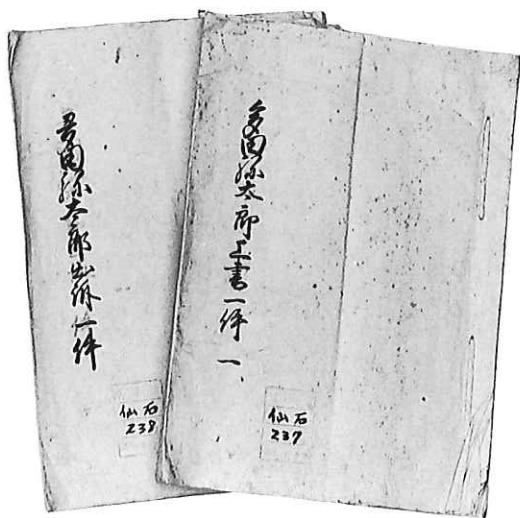 多田弥太郎上書一件 一
仙石
237
多田弥太郎出一件
仙石
238